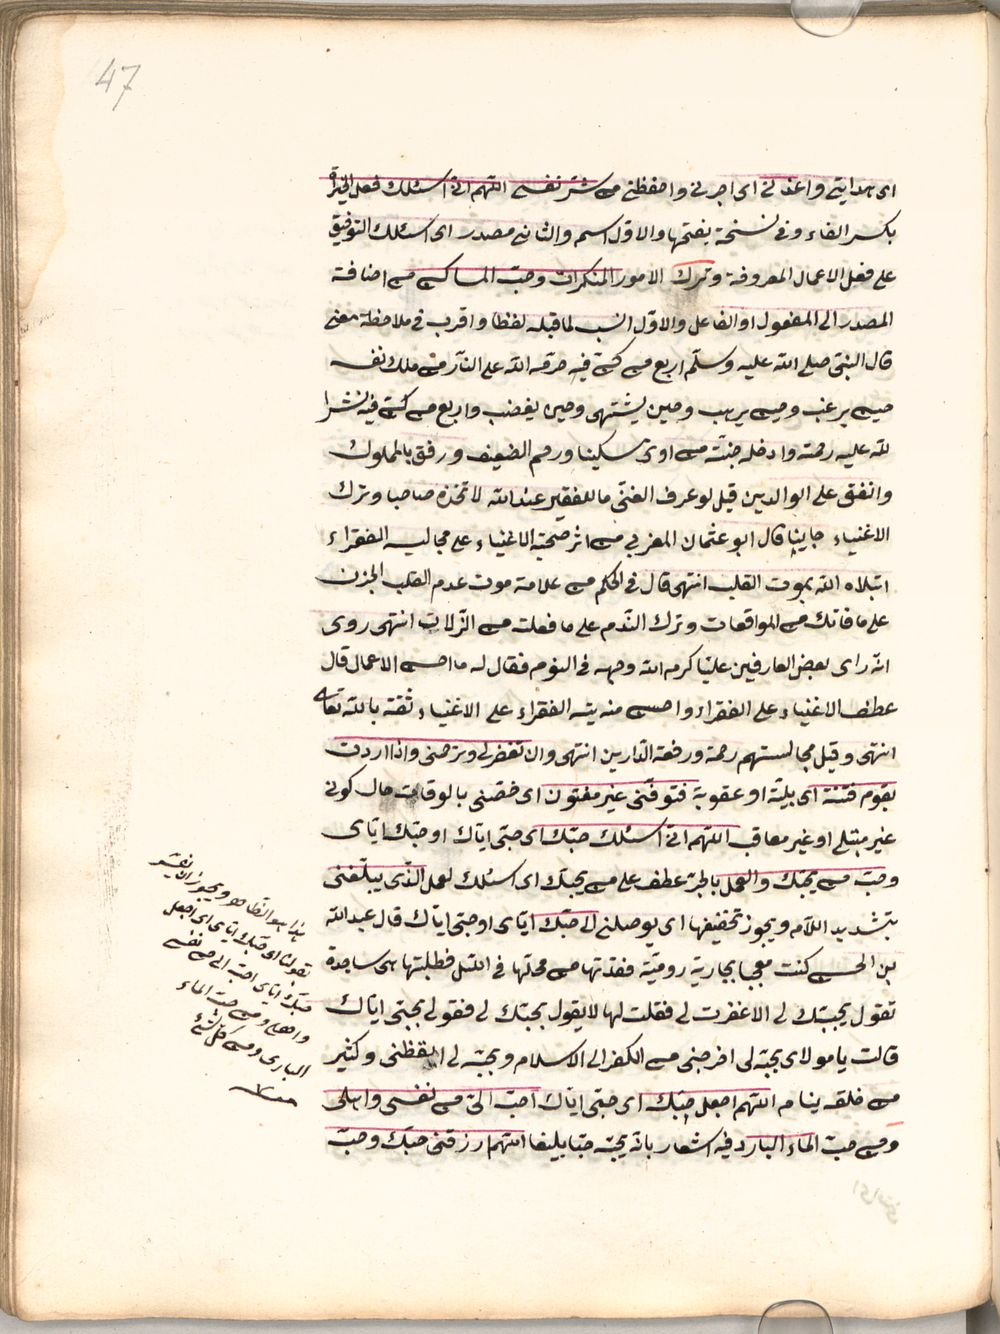 47
اى هدايتى واعذنى اى اجرنى واحفظنى من شر نفسى اللهم انى اسئلك فعل الخيرات
بكسر الفاء وفى نسخة بفتحها والاول اسم والثانى مصدر اى اسئلك التوفيق
على فعل الاعمال المعروفة وترك الامور المنكرات وحب المساكين من اضافة
المصدر الى المفعول او الفاعل والاول انسب لما قبله لفظا واقرب فى ملاحظة معنى
قال النبى صلى الله عليه وسلم اربع من كن فيه حرمه الله على النار من ملك نفسه
حين يرغب وحين يرهب وحين يشتهى وحين يغضب واربع من كن فيه نشر
الله عليه رحمته وادخله جنته من اوى مسكينا ورحم الضعيف ورفق بالمملوك
وانفق على الوالدين قيل لو عرف الغنى ما للفقير عند الله لاتخذه صاحبا وترك
الاغنياء جانبا قال ابو عثمان المغربى من اثر صحبة الاغنياء على مجالسة الفقراء
ابتلاه الله بموت القلب انتهى قال فى الحكم من علامة موت القلب عدم الحزن
على ما فاتك من الموافقات وترك الندم على ما فعلت من الزلات انتهى روى
انه راى بعض العارفين عليا كرم الله وجهه فى النوم فقال له ما احسن الاعمال قال
عطف الاغنياء على الفقراء واحسن منه تيه الفقراء على الاغنياء ثقة بالله تعالى
انتهى وقيل مجالستهم رحمة ورفعة الدارين انتهى وان تغفر لى وترحمنى واذا اردت
بقوم فتنة اى بلية او عقوبة فتوفنى غير مفتون اى خصنى بالوفاة حال كونى
غير مبتلى او غير معاقب اللهم انى اسئلك حبك اى حبى اياك او حبك اياى
وحب من يحبك والعمل بالجر عطف على من يحبك اى اسئلك لعمل الذى يبلغنى
بتشديد اللام ويجوز تخفيفها اى يوصلنى الى حبك اياى او حبى اياك قال عبد الله
بن الحسن كنت معجبا بجارية رومية ففقدتها من محلها فى الليل فطلبتها هى ساجدة
تقول بحبك لى الا غفرت لى فقلت لها لا تقول بحبك لى فقولى بحبى اياك
قالت يا مولاى بحبه لى اخرجنى من الكفر الى الاسلام وبحبه لى ايقظنى وكثير
من خلقه ينام اللهم اجعل حبك اى حبى اياك احب الى من نفسى واهلى
ومن حب الماء البارد فيه اشعار بانه يحبه حبا بليغا اللهم ارزقنى حبك وحب
هذا هو الظاهر ويجوز ان يفسر
بقولنا اى حبك اياى اى اجعل
حبك اياى احب الى من نفسى
واهلى ومن حب الماء
البارد ومن كل شئ